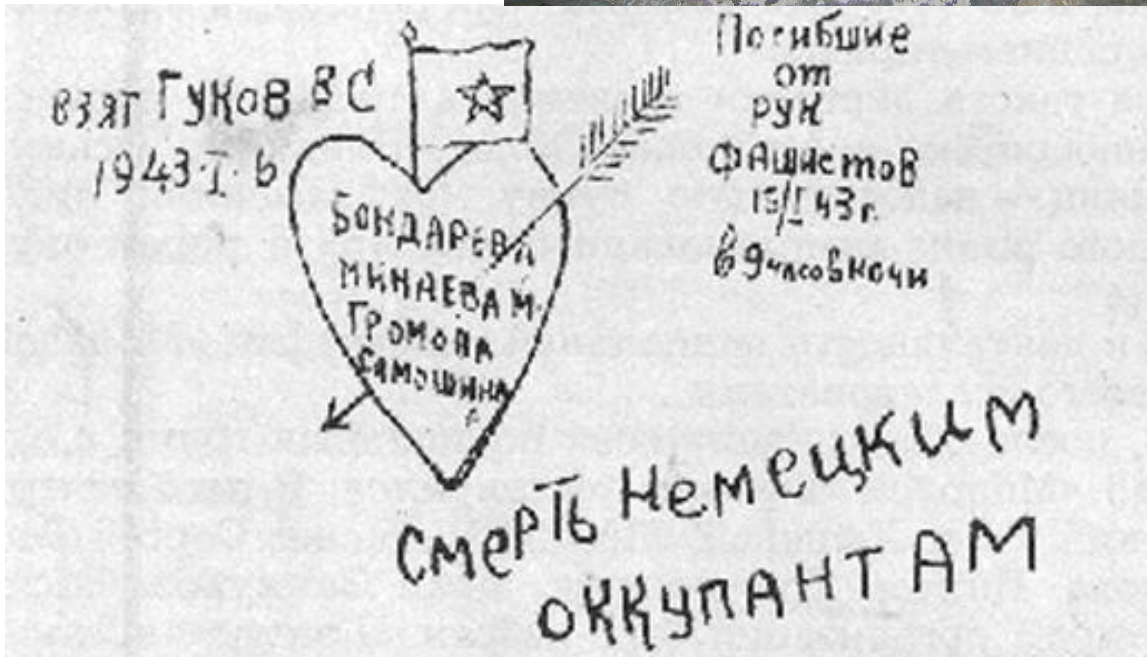 ВЗЯТ ГУКОВ В С
1943·I·6
БОНДАРЕВА
МИНАЕВА М.
ГРОМОВА
САМОШИНА
Погибшие
от
РУК
ФАШИСТОВ
15/I 43 г.
в 9 часов ночи
СМЕРТЬ НЕМЕЦКИМ
ОККУПАНТАМ